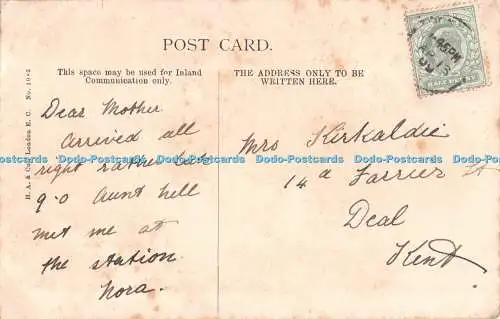 POST CARD.
This space may be used for Inland
Communication only.
THE ADDRESS ONLY TO BE
WRITTEN HERE.
H. A. & Co., London E. C. No. 1082
Dear Mother
arrived all
right rather late
9.0 Aunt Nell
met me at
the station.
Nora.
Mrs Kirkaldie
14a Farrier St
Deal
Kent.
Dodo-Postcards Dodo-Postcards Dodo-Postcards Dodo-Postcards Dodo-Postcards
HALF PENNY